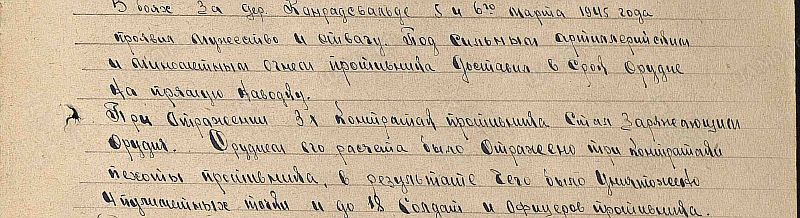 В боях за дер. Конрадсвальде 5 и 6го марта 1945 года
проявил мужество и отвагу. Под сильным артиллерийским
и минометным огнем противника доставил в срок орудие
на прямую наводку.
При отражении 3х контратак противника стал заряжающим
орудия. Орудием его расчета было отражено три контратаки
пехоты противника, в результате чего было уничтожено
4 пулеметных точки и до 18 солдат и офицеров противника.